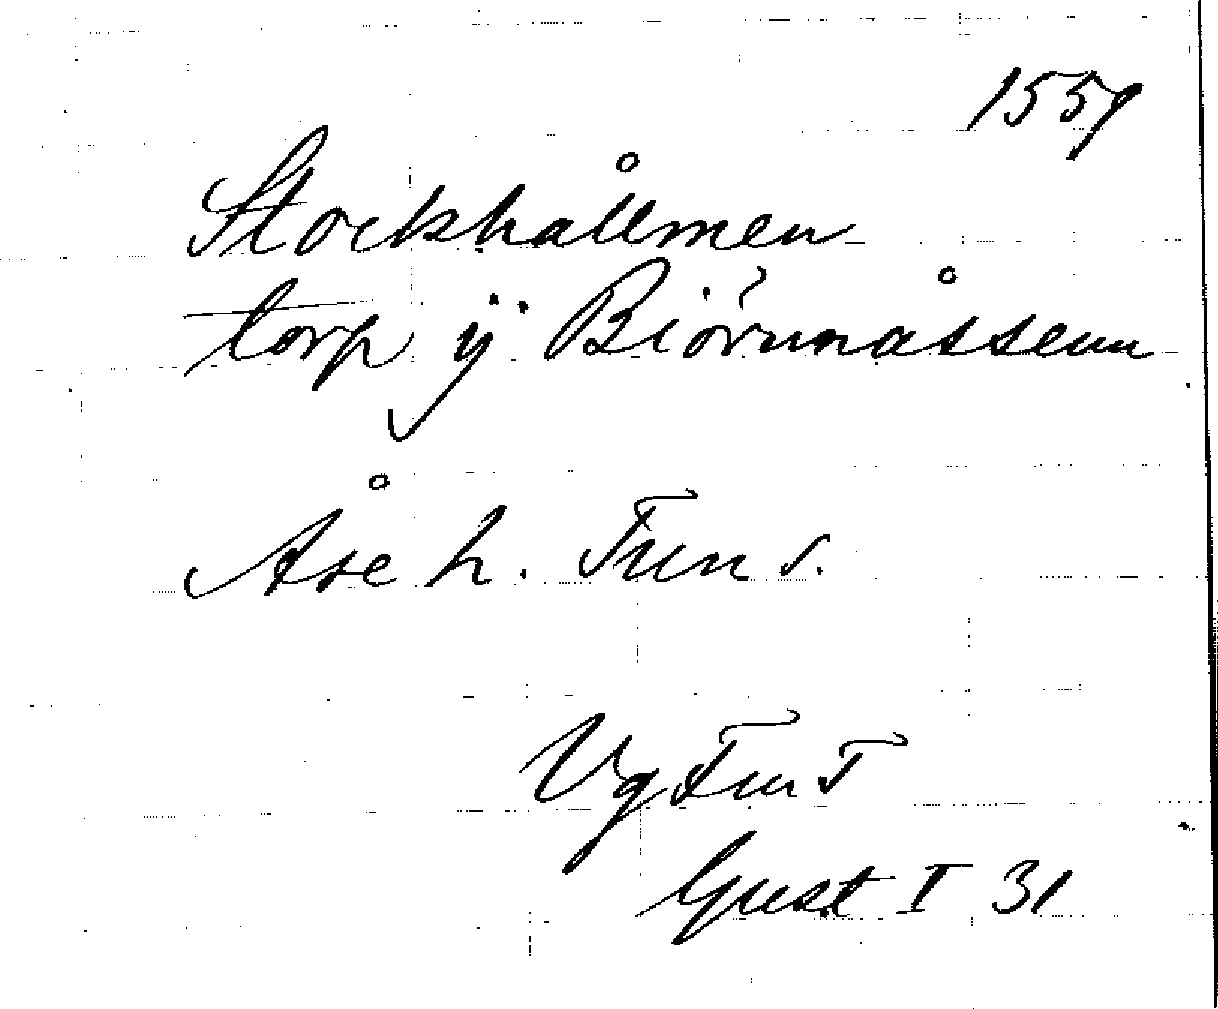 1559
Stockhållmen
torp ÿ Biörnmåssenn
Åse h. Tun s.
Vg Fru T
Gust I 31